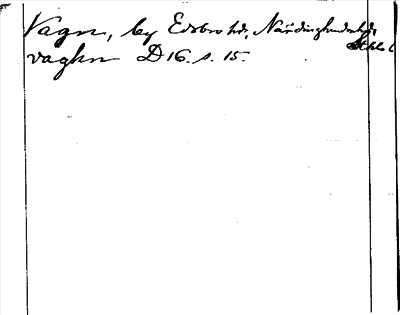 Vagn, by Edsbro hd, Närdinghundra hd,
Sthl l
vaghn D 16. s. 15.